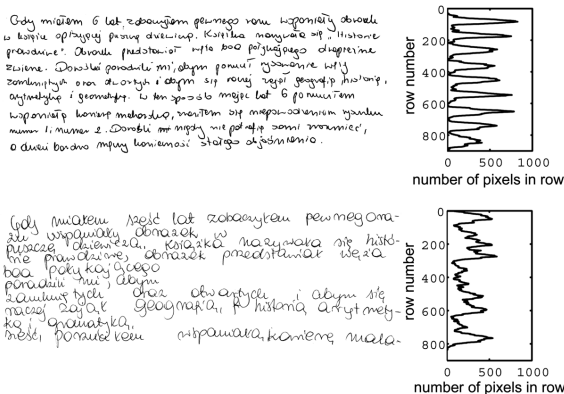 Gdy miałem 6 lat, zobaczyłem pewnego razu wspaniały obrazek
w książce opisującej puszczę dziewiczą. Książka nazywała się „Historie
prawdziwe". Obrazek przedstawiał węża boa połykającego drapieżne
zwierzę. Dorośli poradzili mi, abym porzucił rysowanie węży
zamkniętych oraz otwartych i abym się raczej zajął geografią, historią,
arytmetyką i gramatyką. W ten sposób mając lat 6 porzuciłem
wspaniałą karierę malarską, zraziłem się niepowodzeniem rysunku
numer 1 i numer 2. Dorośli nigdy nie potrafią sami zrozumieć,
a dzieci bardzo męczy konieczność stałego objaśniania.
0
200
400
600
800
row number
0 500 1000
number of pixels in row
Gdy miałem sześć lat zobaczyłem pewnego ra-
zu wspaniały obrazek w
puszczę dziewiczą. Książka nazywała się histo-
rie prawdziwe, obrazek przedstawiał węża
boa połykającego
poradzili mi, abym
zamkniętych oraz otwartych i abym się
raczej zajął geografią, historią arytmety-
ką i gramatyką.
sześć porzuciłem wspaniałą karierę mala-
0
200
400
600
800
row number
0 500 1000
number of pixels in row